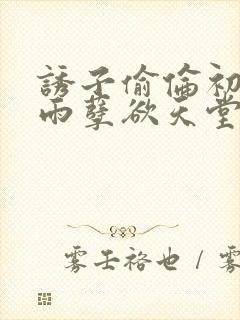 誘子偷倫初
雨孽欲天堂
雾壬裕也 / 雾